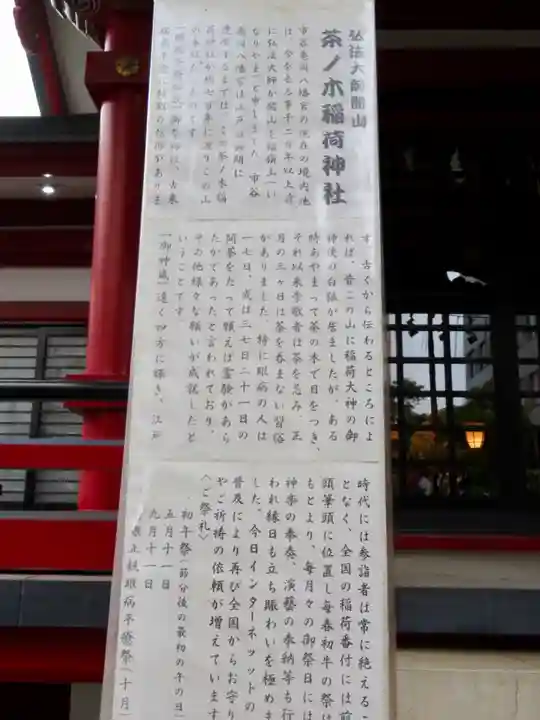 弘法大師開山
茶ノ木稲荷神社
市谷亀岡八幡宮の現在の境内地
は、今を去る事千二百年以上前
に弘法大師が開山し稲嶺山(い
なりやま)と申しました。市谷
亀岡八幡宮は江戸
するまでは、この茶ノ木稲
荷神社が約七百年に渡りこの山
古来
ありま
す。古くから伝わるところによ
れば、昔この山に稲荷大神の御
神使の白狐が居ましたが、ある
時あやまって茶の木で目をつき、
それ以来崇敬者は茶を忌み、正
月の三ヶ日は茶を呑まない習俗
がありました。特に眼病の人は
一七日、或は三七日二十一日の
間茶をたって願えば霊験があら
たかであったと言われており、
その他様々な願いが成就したと
いうことです。
「御神威」遠く四方に輝き、江戸
時代には参詣者は常に絶えるこ
となく、全国の稲荷番付には前
頭筆頭に位置し毎春初午の祭は
もとより、毎月々の御祭日には
神楽の奉奏、演藝の奉納等も行
われ縁日も立ち賑わいを極めま
した。今日インターネットの
普及により再び全国からお守り
やご祈祷の依頼が増えています
〈ご祭礼〉
初午祭(節分後の最初の午の日)
五月十一日
九月十一日
眼病平癒祭(十月